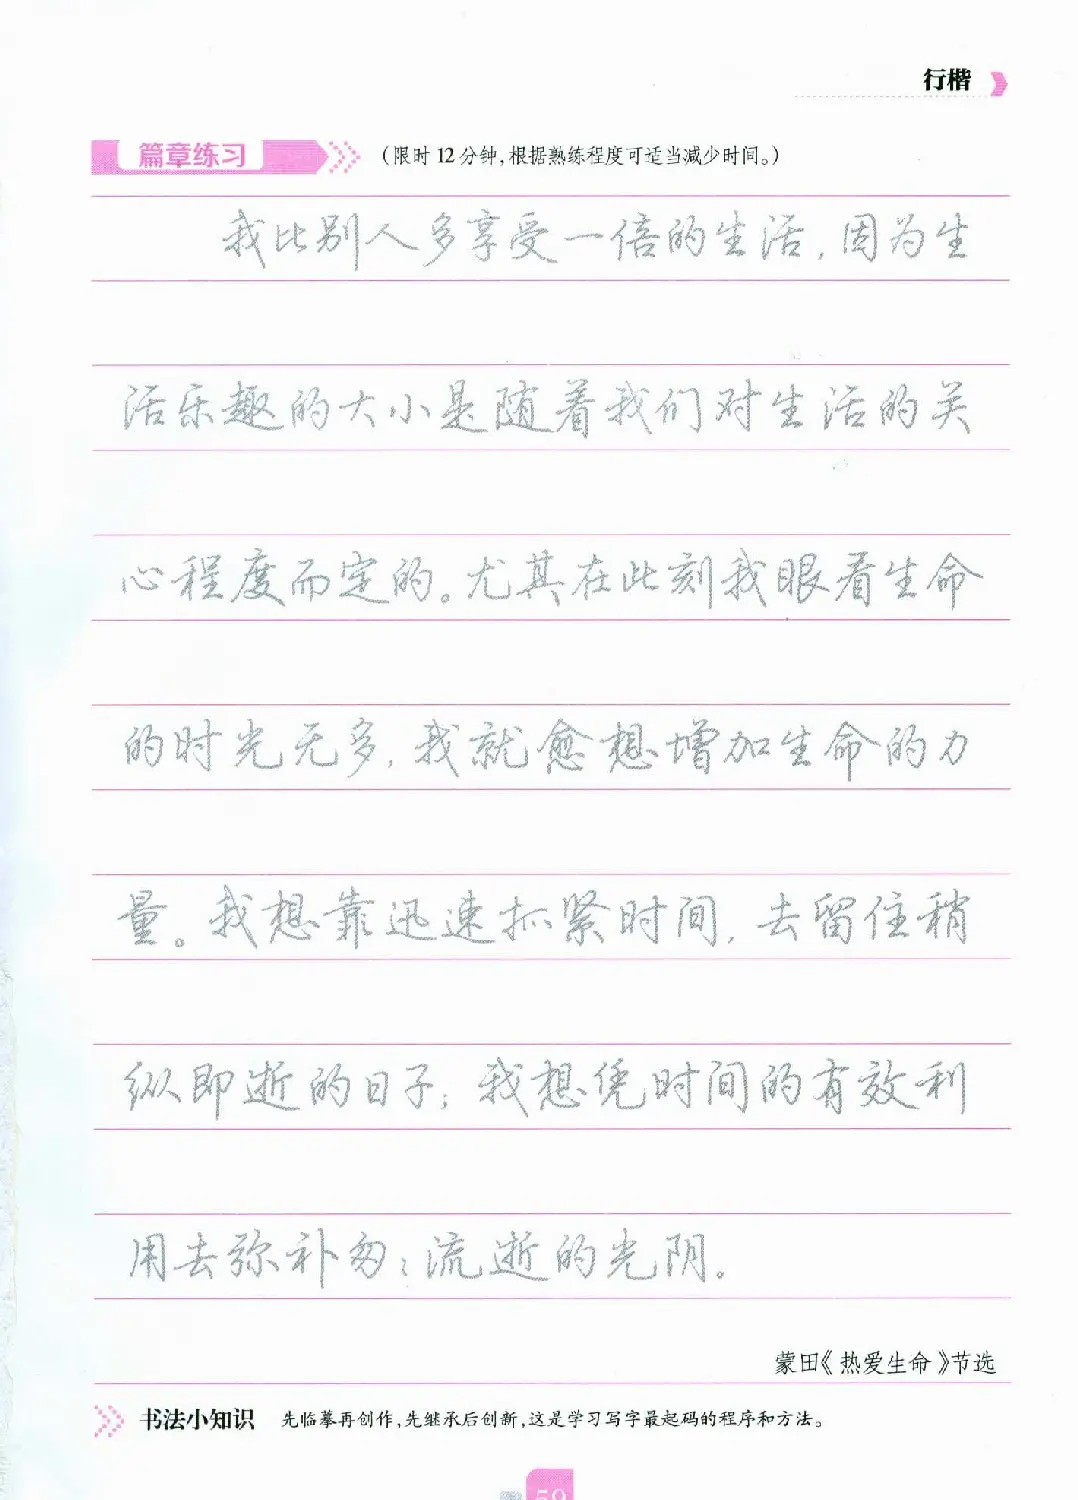 行楷
篇章练习
(限时12分钟,根据熟练程度可适当减少时间。)
我比别人多享受一倍的生活,因为生
活乐趣的大小是随着我们对生活的关
心程度而定的。尤其在此刻我眼看生命
的时光无多,我就愈想增加生命的力
量。我想靠迅速抓紧时间,去留住稍
纵即逝的日子;我想凭时间的有效利
用去弥补匆匆流逝的光阴。
蒙田《热爱生命》节选
书法小知识 先临摹再创作,先继承后创新,这是学习写字最起码的程序和方法。
59